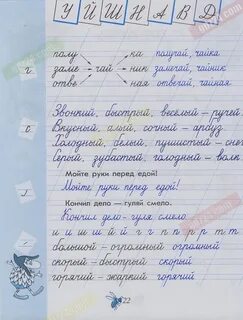 У Й Ш Н А В Д
полу на получай, чайка
г. заме чай ник замечай, чайник
отве ная отвечай, чайная
Звонкий, быстрый, весёлый – ручей
о. Вкусный, алый, сочный – арбуз
Холодный, белый, пушистый – снег
Серый, зубастый, голодный – волк
Мойте руки перед едой!
Мойте руки перед едой!
Кончил дело — гуляй смело.
Кончил дело - гуля смело
и и ш и й й г г п п р р т т
большой – огромный огромный
скорый – быстрый скорый
горячий – жаркий горячий
22